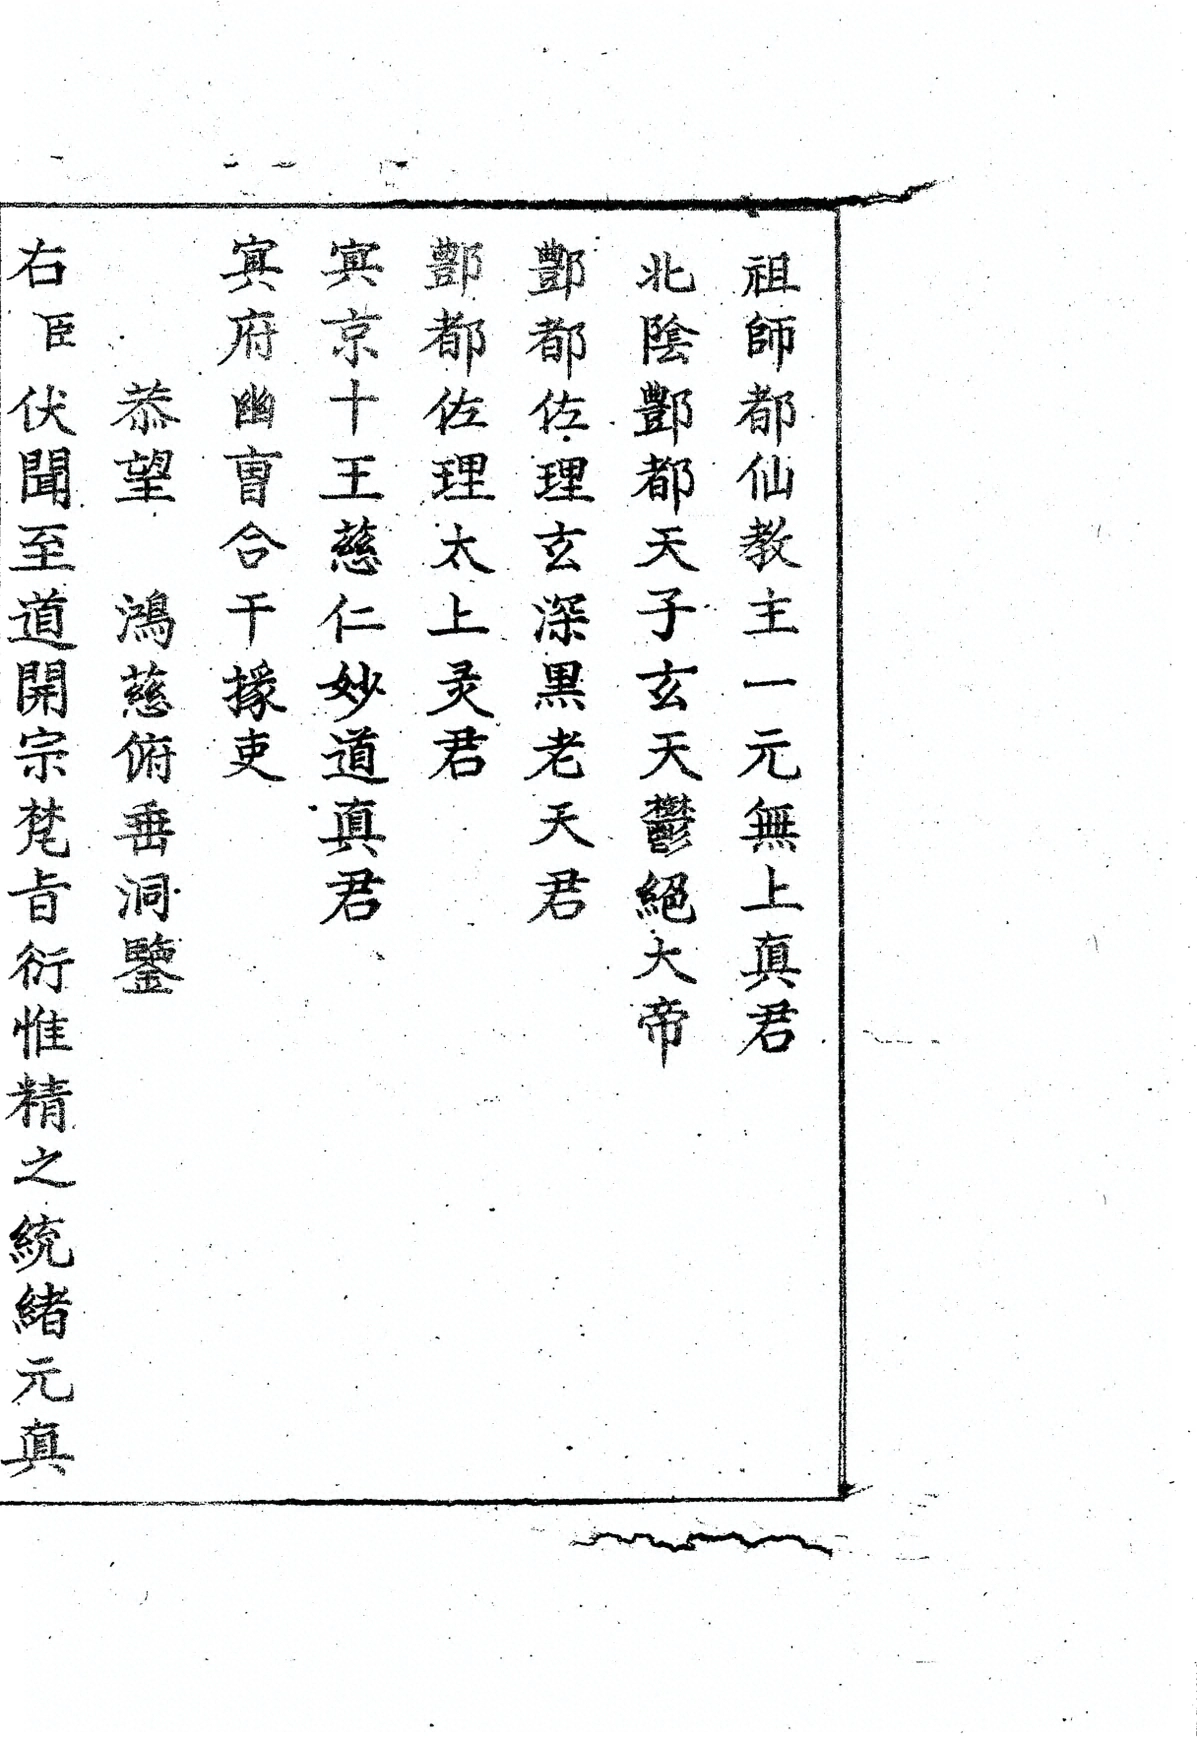 祖師都仙教主一元無上真君
北陰酆都天子玄天鬱絕大帝
酆都佐理玄深黒老天君
酆都佐理太上灵君
冥京十王慈仁妙道真君
冥府幽曺合干掾吏
恭望　鴻慈俯垂洞鑒
右臣伏聞至道開宗梵旨衍惟精之統緒元真